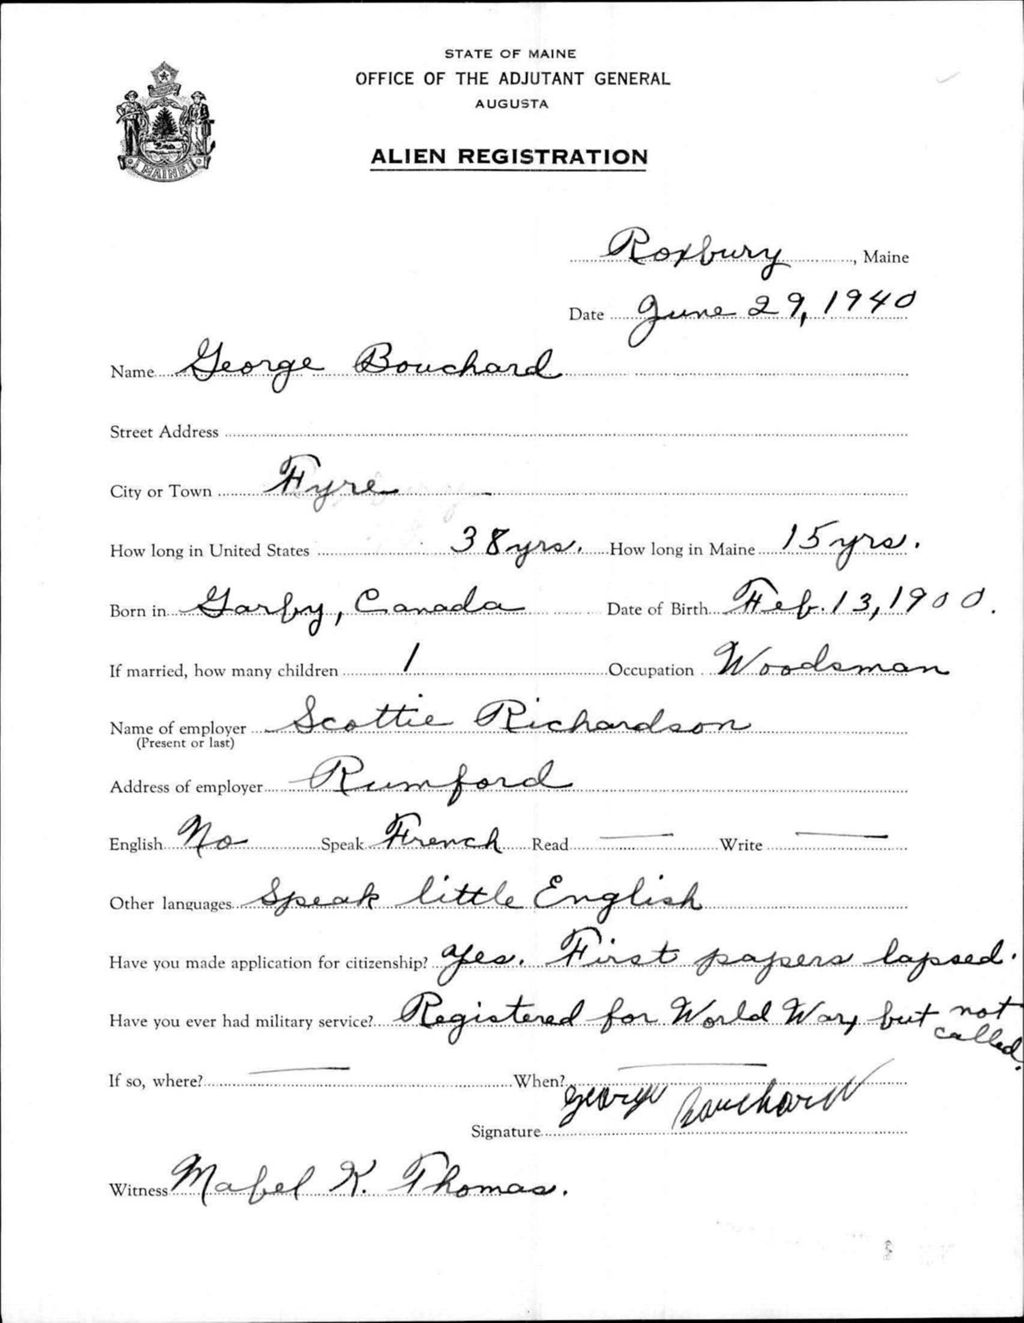 STATE OF MAINE
OFFICE OF THE ADJUTANT GENERAL
AUGUSTA
ALIEN REGISTRATION
MAINE
Roxbury, Maine
Date June 29, 1940
Name George Bouchard
Street Address
City or Town Hyre
How long in United States 38 yrs. How long in Maine 15 yrs.
Born in Garby, Canada Date of Birth Feb. 13, 1900.
If married, how many children 1 Occupation Woodsman
Name of employer Scottie Richardson
(Present or last)
Address of employer Rumford
English No Speak French Read — Write —
Other languages Speak little English
Have you made application for citizenship? Yes. First papers lapsed.
Have you ever had military service? Registered for World War, but not
called.
If so, where? — When? —
Signature George Bouchard
Witness Mabel K. Thomas.